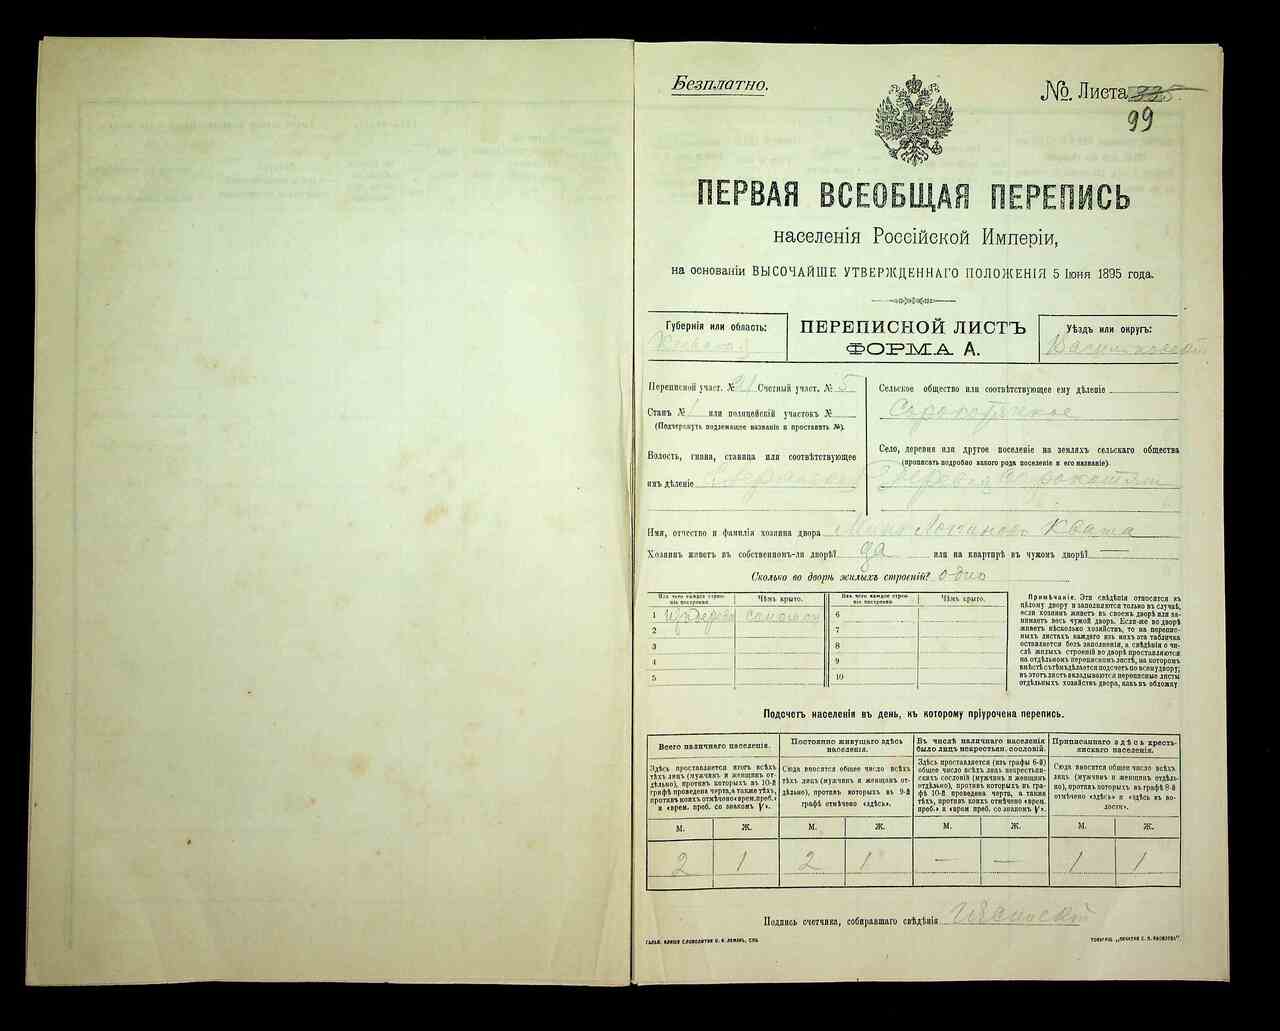 Безплатно.
№. Листа 335.
99
ПЕРВАЯ ВСЕОБЩАЯ ПЕРЕПИСЬ
населенія Россійской Имперіи,
на основаніи ВЫСОЧАЙШЕ УТВЕРЖДЕННАГО ПОЛОЖЕНІЯ 5 Іюня 1895 года.
Губернія или область:
Кіевская
ПЕРЕПИСНОЙ ЛИСТЪ
ФОРМА А.
Уѣздъ или округъ:
Васильковскій
Переписной участ. № Счетный участ. № 5
Станъ № 1 или полицейскій участокъ №
(Подчеркнуть подлежащее названіе и проставить №).
Волость, гмина, станица или соотвѣтствующее
имъ дѣленіе
Сельское общество или соотвѣтствующее ему дѣленіе
Село, деревня или другое поселеніе на земляхъ сельскаго общества
(прописать подробно какого рода поселеніе и его названіе)
Деревня
Имя, отчество и фамилія хозяина двора Кваша
Хозяинъ живетъ въ собственномъ-ли дворѣ? да или на квартирѣ въ чужомъ дворѣ? —
Сколько во дворѣ жилыхъ строеній? одно
Изъ чего каждое строеніе построено.
Чѣмъ крыто.
Изъ чего каждое строеніе построено.
Чѣмъ крыто.
1 Изъ дерева соломою 6
2 7
3 8
4 9
5 10
Примѣчаніе. Эти свѣдѣнія относятся къ
цѣлому двору и заполняются только въ случаѣ,
если хозяинъ живетъ въ своемъ дворѣ или занимаетъ
весь чужой дворъ. Если-же во дворѣ
живетъ нѣсколько хозяйствъ, то на переписныхъ
листахъ каждаго изъ нихъ эта табличка
оставляется безъ заполненія, а свѣдѣнія о числѣ
жилыхъ строеній во дворѣ проставляются
на отдѣльномъ переписномъ листѣ, на которомъ
вмѣстѣ съ тѣмъ дѣлается подсчетъ по всему двору;
въ этотъ листъ вкладываются переписные листы
отдѣльныхъ хозяйствъ двора, какъ въ обложку.
Подсчетъ населенія въ день, къ которому пріурочена перепись.
Всего наличнаго населенія.
Здѣсь проставляется итогъ всѣхъ
тѣхъ лицъ (мужчинъ и женщинъ отдѣльно),
противъ которыхъ въ 10-й
графѣ проведена черта, а также тѣхъ,
противъ коихъ отмѣчено «врем. преб.»
и «врем. преб. со знакомъ V».
Постоянно живущаго здѣсь
населенія.
Сюда вносится общее число всѣхъ
тѣхъ лицъ (мужчинъ и женщинъ отдѣльно),
противъ которыхъ въ 9-й
графѣ отмѣчено «здѣсь».
Въ числѣ наличнаго населенія
было лицъ некрестьян. сословій.
Здѣсь проставляется (изъ графы 6-й)
общее число всѣхъ лицъ некрестьянскихъ
сословій (мужчинъ и женщинъ
отдѣльно), противъ которыхъ въ графѣ
10-й проведена черта, а также
тѣхъ, противъ коихъ отмѣчено «врем.
преб.» и «врем преб. со знакомъ V».
Приписаннаго здѣсь крестьянскаго
населенія.
Сюда вносится общее число всѣхъ
лицъ (мужчинъ и женщинъ отдѣльно),
противъ которыхъ въ графѣ 8-й
отмѣчено «здѣсь» и «здѣсь въ волости».
М. Ж. М. Ж. М. Ж. М. Ж.
2 1 2 1 — — 1 1
Подпись счетчика, собиравшаго свѣдѣнія
ГАЛЬВ. КЛИШЕ СЛОВОЛИТНИ О. И. ЛЕМАНЪ, СПБ.
ТОВАРИЩ. „ПЕЧАТНЯ С. П. ЯКОВЛЕВА".